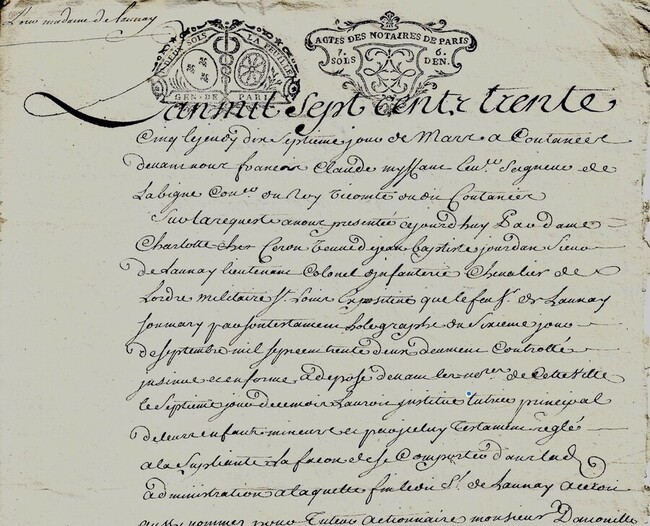 Pour madame de Launay
DEUX SOLS LA FEUILLE
GEN. DE PARIS
ACTES DES NOTAIRES DE PARIS
7. SOLS 6. DEN.
Lan mil sept cents trente
Cinq le jeudy dix septieme jour de Mars a Coutances
devant nous francois Claude Seigneur de
Labigne Coner. du Roy Vicomte dudit Coutances
Sur la requeste a nous presentée ajourdhuy Par dame
Charlotte jean baptiste jourdan Sieur
de Launay lieutenant Colonel dinfanterie Chevalier de
Lordre militaire St. Louis Expositive que le feu Sr. de Launay
son mary par son testament holographe du Sixieme jour
de septembre mil sept cent trente deux deument Controllé
insinué et en forme a deposé devant les de cette Ville
le septieme jour de ce mois Lauroit institué tutrice principal
de leurs enfants mineurs et par iceluy testament reglé
a la Supliante la facon de se Comporter dans lad
administration a laquelle fin led. Sr. de Launay
nommer pour Tuteur actionnaire monsieur Danconville